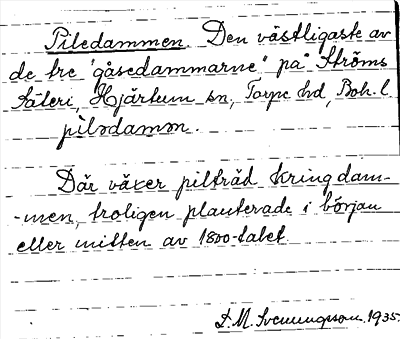 Piledammen. Den västligaste av
de tre "gåsedammarne" på Ströms
säteri, Hjärtum sn, Torpe hd, Boh. l.
piledamman.
Där växer pilträd kring dam-
-men, troligen planterade i början
eller mitten av 1800-talet.
D.M. Svenungsson 1935.